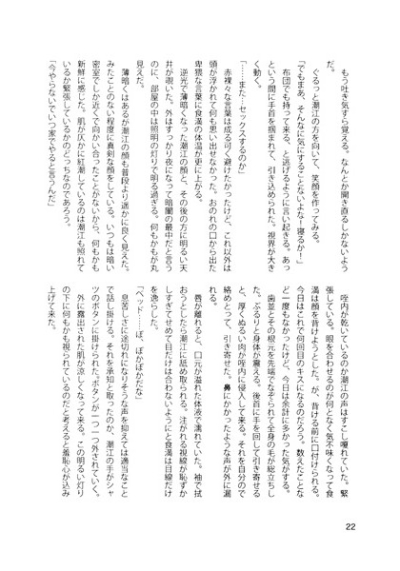 もう吐き気すら覚える。なんとか聞き直るしかないよう
だ。
ぐるっと潮江の方を向いて、笑顔を作ってみる。
「でもまあ、そんなに気にすることないよな！寝るか！」
布団でも持って来る、と逃げるように言い起きる。あっ
という間に手首を掴まれて、引き込められた。視界が大き
く動く。
「……また…セックスするのか」
赤裸々な言葉は成る可く避けたかったけど、これ以外は
頭が浮かれて何も思い出せなかった。おのれの口から出た
卑猥な言葉に食満の体温が更に上がる。
逆光で薄暗くなった潮江の顔と、その後の方に明るい天
井が覗いた。外はすっかり夜になって暗闇の最中だと言う
のに、部屋の中は照明の灯りで明る過ぎる。何もかもが丸
見えだ。
薄暗くはあるが潮江の顔も普段より遥かに良く見えた。
みたことのない程度に真剣な顔をしている。いつもは暗い
密室でしか近くで向かい合ったことがないから、何もかも
新鮮に感じた。肌が仄かに紅潮しているのは潮江も照れて
いるか緊張しているかのどっちなのであろう。
「今やらないでいつ家でやると言うんだ」
咥内が乾いているのか潮江の声はすこし嗄れていた。緊
張している。眼を合わせるのが何となく気不味くなって食
満は顔を背けようとした。が、背ける前に口付けられる。
今日はこれで何回目のキスになるのだろう。数えたことな
ど一度もなかったけど、今日は余計に多かった気がする。
歯並とその根元を先端でなぞられて全身の毛が総立ちし
た。ぶるりと身体が震える。後首に手を回して引き寄せる
と、厚くぬるい肉が咥内に侵入して来る。それを自分ので
絡めとって、引き寄せた。鼻にかかったような声が外に漏
れる。
唇が離れると、口元が溢れた体液で濡れていた。袖で拭
おうとしたら潮江に舐め取られる。注がれる視線が恥ずか
しすぎてせめて目だけは合わないようにと食満は目線だけ
を逸らした。
「ヘッド……ぽ、ぽかぽかだな」
息苦しさに途切れになりそうな声を抑えては適当なこと
で話し掛ける。それを承知と取ったのか、潮江の手がシャ
ツのボタンに掛けられた。ボタンが一つ一つ外されていく。
外に露出された肌が涼しくなって来る。この明るい灯り
の下に何もかも視られているのだと考えると羞恥心が込み
上げて来た。
22